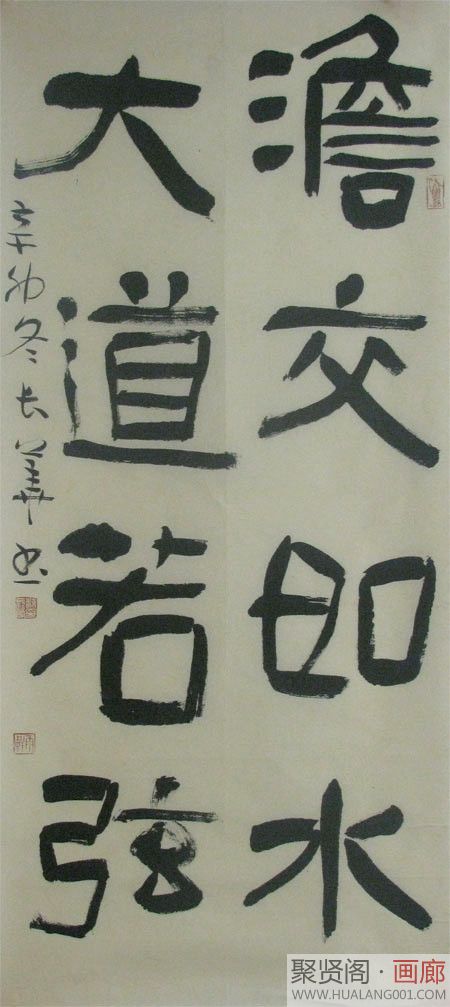 澹交即水
大道若弦
辛卯冬长华书
聚贤阁·画廊
WWW.HUALANG001.COM